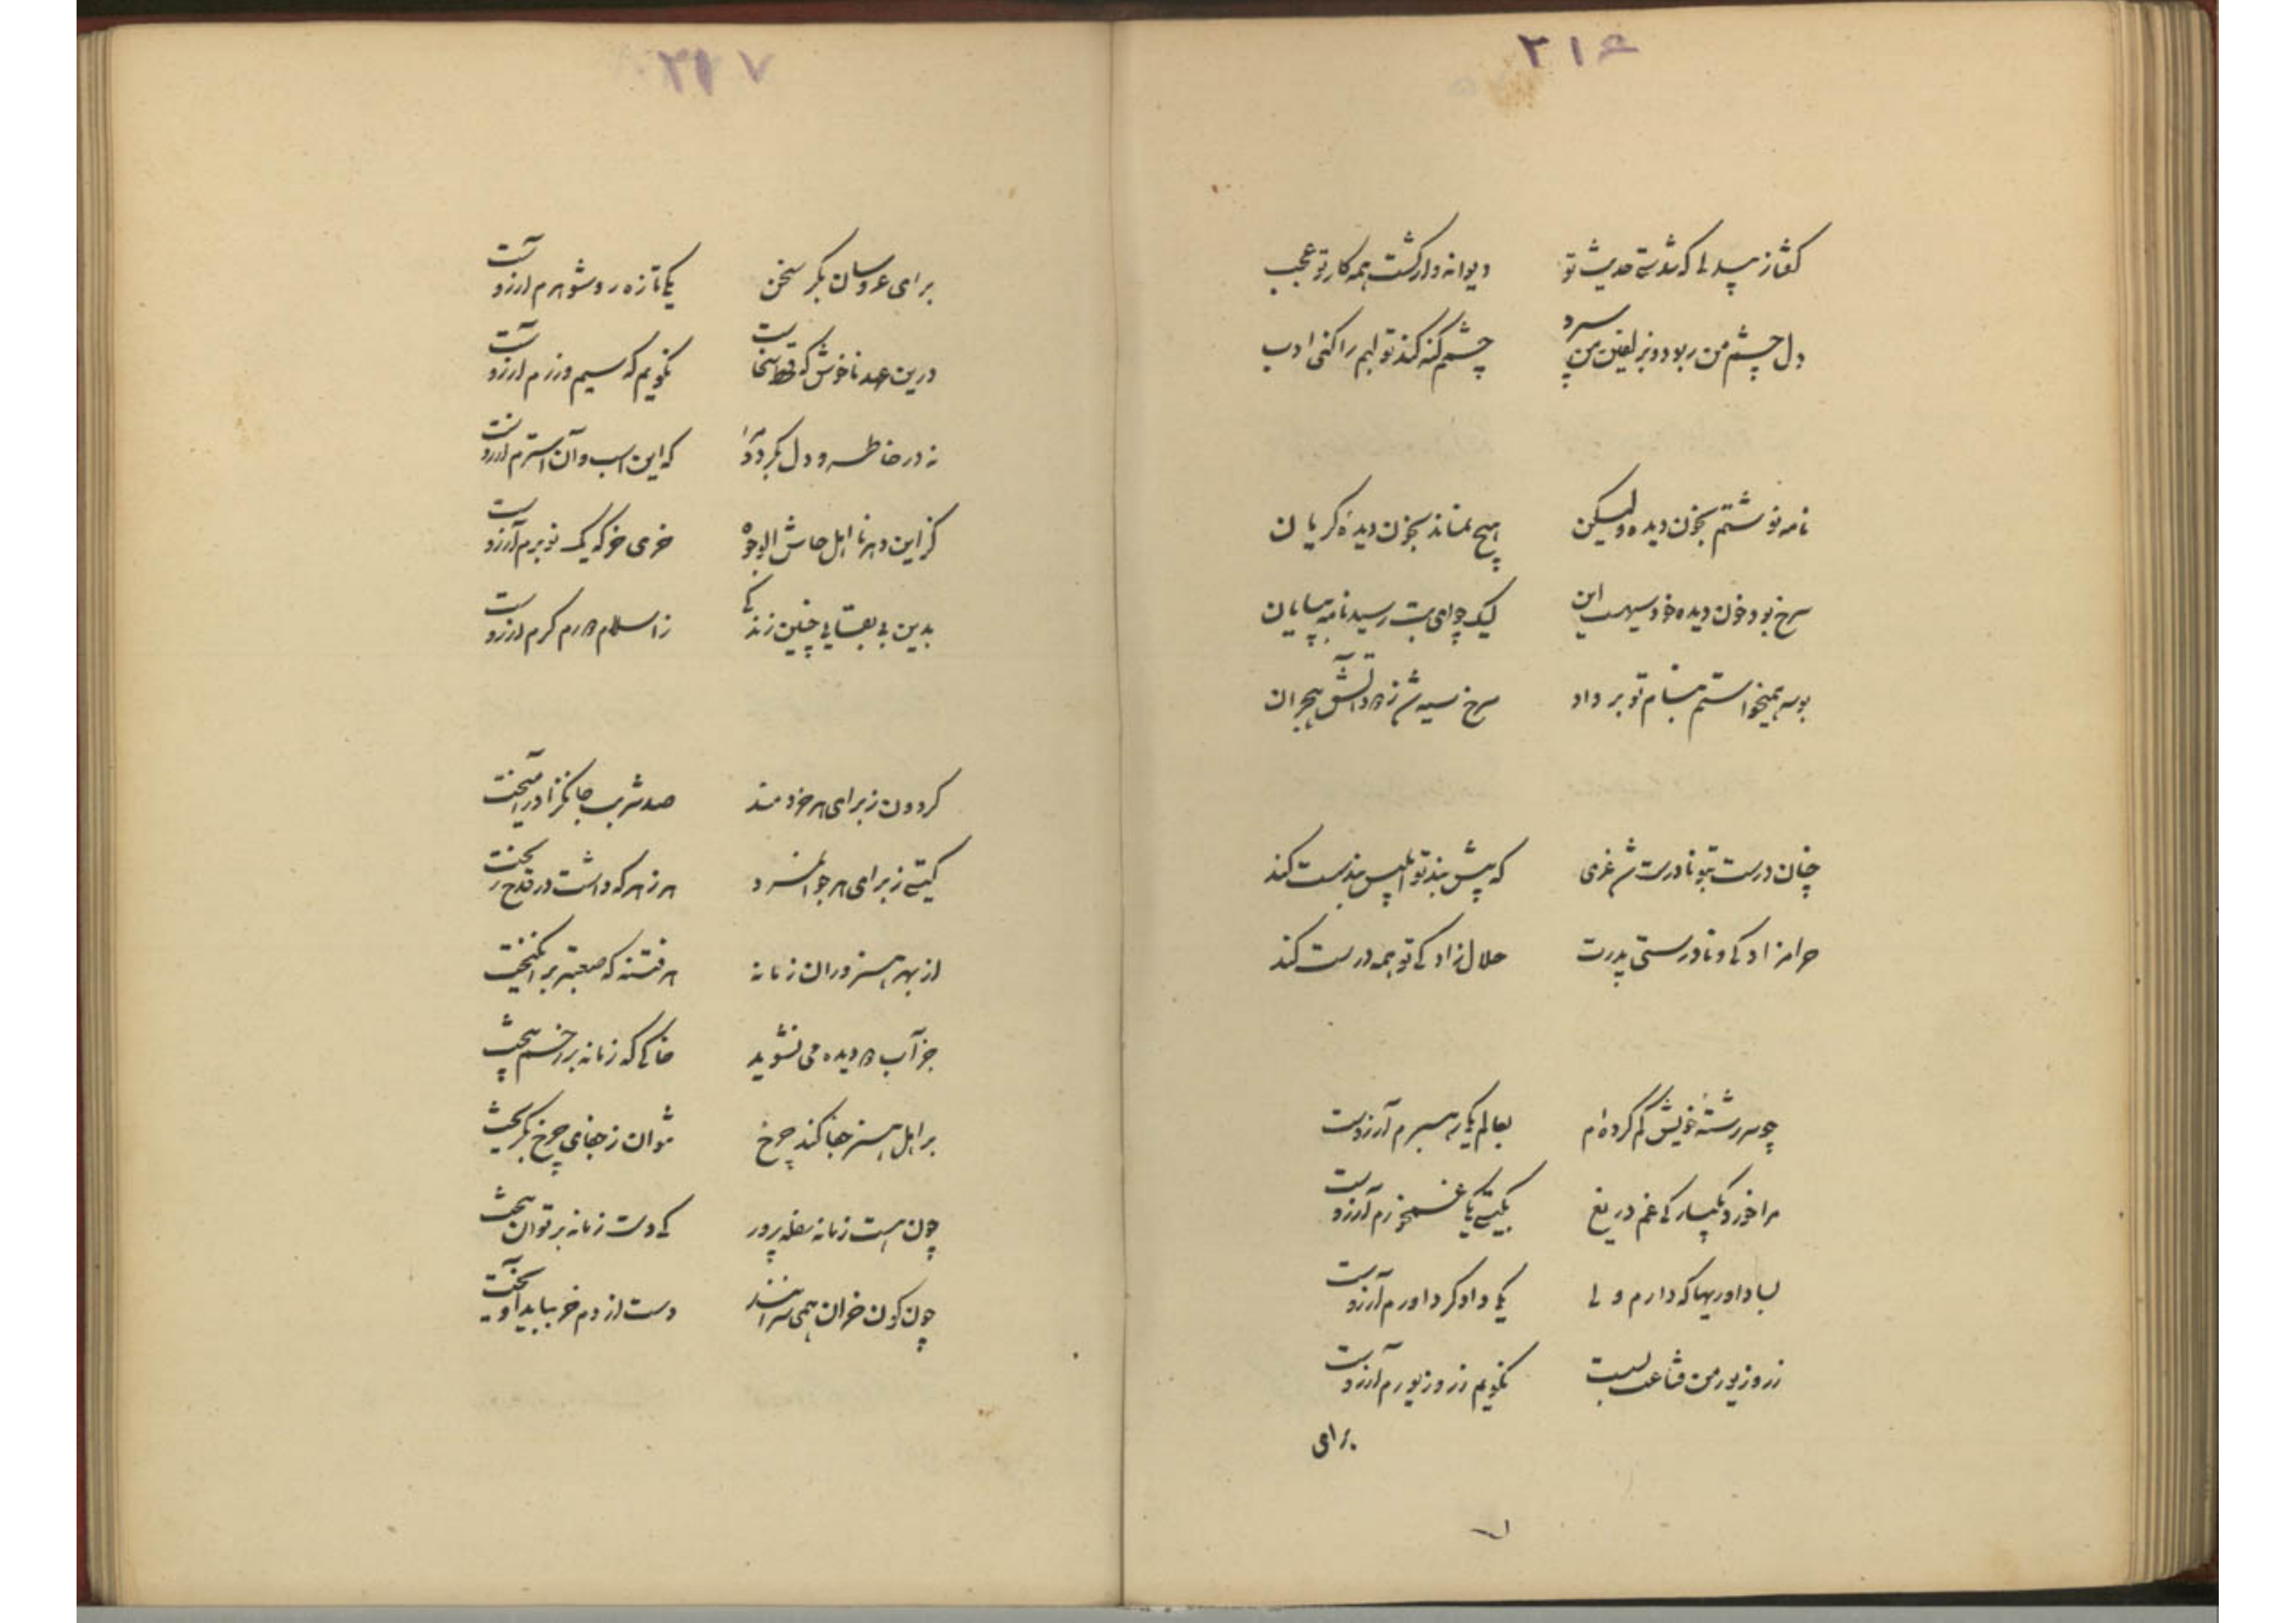 ۲۱۶
گفتا ز بیدلی که شدستی حدیث تو دیوانه وار گشت همه کار تو عجب
دل چشم من ربود و بزلفین من سپرد چشمم گنه کند تو لبم را کنی ادب
نامه نوشتم بخون دیده ولیکن هیچ نماند بخون دیده گریان
سرخ بود خون دیده خود سیهست این لیک چو ای بت رسید نامه بپایان
بوسه همیخواستم بنام تو بر داد سرخ سیه شد ز درد آتش هجران
چنان درست بتو نادرست شد غری که پیش بند تو ابلیس بند سست کند
حرامزادگی و نادرستی پدرت حلال زادگی تو همه درست کند
چو سررشته خویش گم کرده‌ام بعالم یکی رهبرم آرزوست
مرا خورد یکبارگی غم دریغ بگیتی یکی غمخورم آرزوست
بسا داوریها که دارم ولی یکی دادگر داورم آرزوست
زر و زیور من قناعت بسست نگویم زر و زیورم آرزوست
برای
۲۱۷
برای عروسان بکر سخن یکی تازه رو شوهرم آرزوست
درین عهد ناخوش که قحط سخاست نگویم که سیم و زرم آرزوست
نه در خاطر و دل بگردد مرا که این اسب و آن استرم آرزوست
کز این دهر نااهل حاش الوجوه خری خو که یک نوبرم آرزوست
بدین بی بقایی چنین زندگی ز اسلام در هم کرم آرزوست
گردون ز برای هر خردمند صد شربت جانگزا در آمیخت
گیتی ز برای هر جوانمرد هر زهر که داشت در قدح ریخت
از بهر هنروران زمانه هر فتنه که صعبتر برانگیخت
جز آب دو دیده می نشوید خاکی که زمانه بر رخم بیخت
بر اهل هنر جفا کند چرخ نتوان ز جفای چرخ بگریخت
چون هست زمانه سفله پرور کی دست زمانه بر توان پیخت
چون کون خران همی سرانند دست از دم خر بباید آویخت